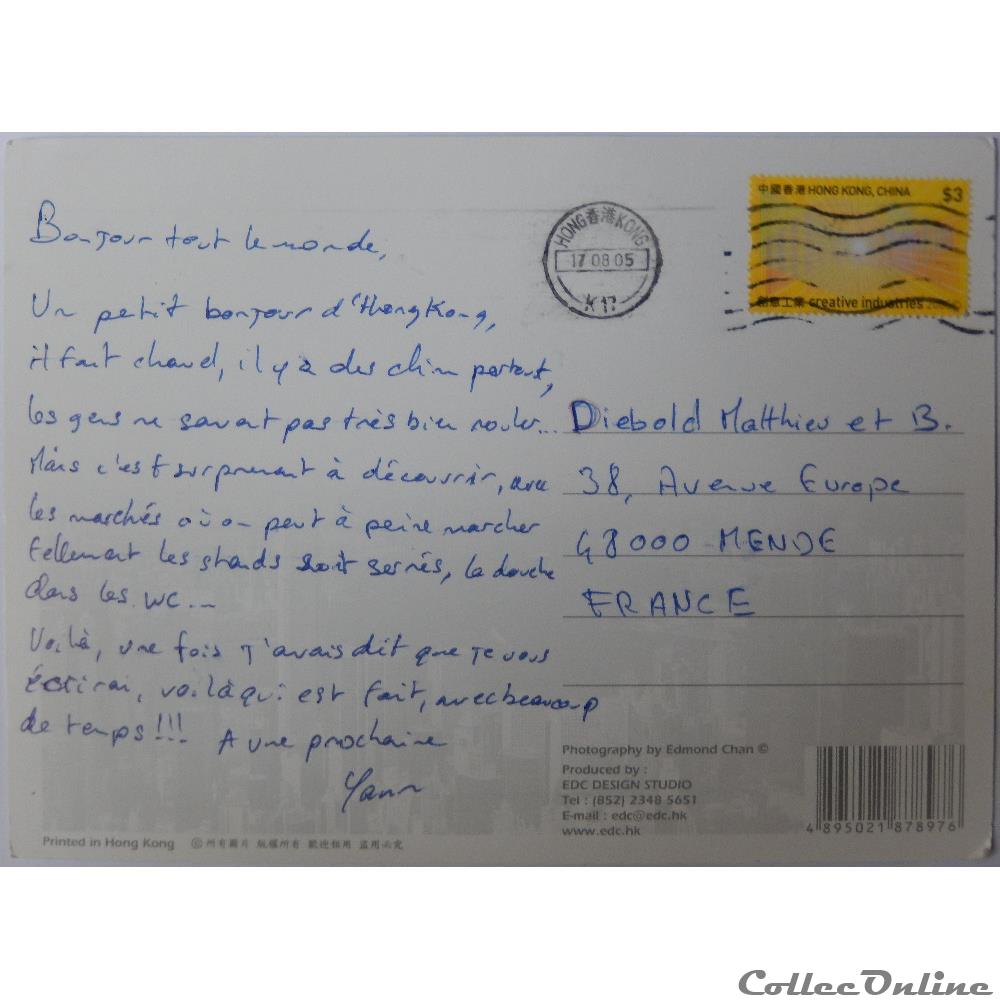 中國香港 HONG KONG, CHINA $3
HONG香港KONG
17 08 05
K17
創意工業 creative industries
Bonjour tout le monde,
Un petit bonjour d'HongKong,
il fait chaud, il y a des chin partout,
les gens ne savent pas très bien rouler...
Mais c'est surprenant à découvrir, avec
les marchés où on peut à peine marcher
tellement les stands sont serrés, la douche
dans les WC...
Voilà, une fois j'avais dit que je vous
écrirai, voilà qui est fait, avec beaucoup
de temps!!!
A une prochaine
Yann
Diebold Matthieu et B.
38, Avenue Europe
48000 MENDE
FRANCE
Photography by Edmond Chan ©
Produced by :
EDC DESIGN STUDIO
Tel : (852) 2348 5651
E-mail : edc@edc.hk
www.edc.hk
4 895021 878976
Printed in Hong Kong © 所有圖片 版權所有 歡迎租用 盜用必究
CollecOnline